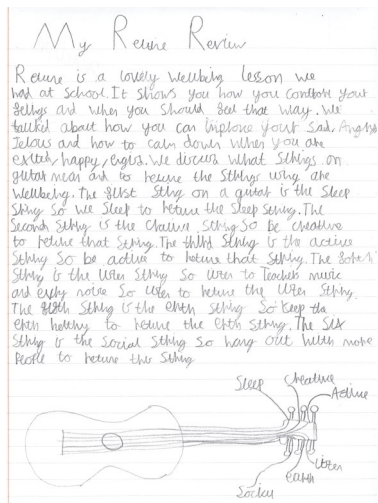 My Retune Review
Retune is a lovely wellbeing lesson we
had at school. It shows you how you controle your
fellings and when you should feel that way. We
talked about how you can improve your Sad, Angry,
Jelous and how to calm down when you are
happy. We discuss what Stings on
guitar mean and to retune the Stings wing are
Wellbeing. The first Sting on a guitar is the Sleep
String So we Sleep to retune the Sleep String. The
Second String is the String So be creative
to retune that String. The third String is the active
String So be active to retune that String. The
String is the So to Teacher, music
and evry noise So to retune the String.
The String is the erth String So keep the
erth helthy to retune the Erth String. The Six
String is the Social String So hang out with more
People to retune this String
Sleep
Creative
Active
earth
Social